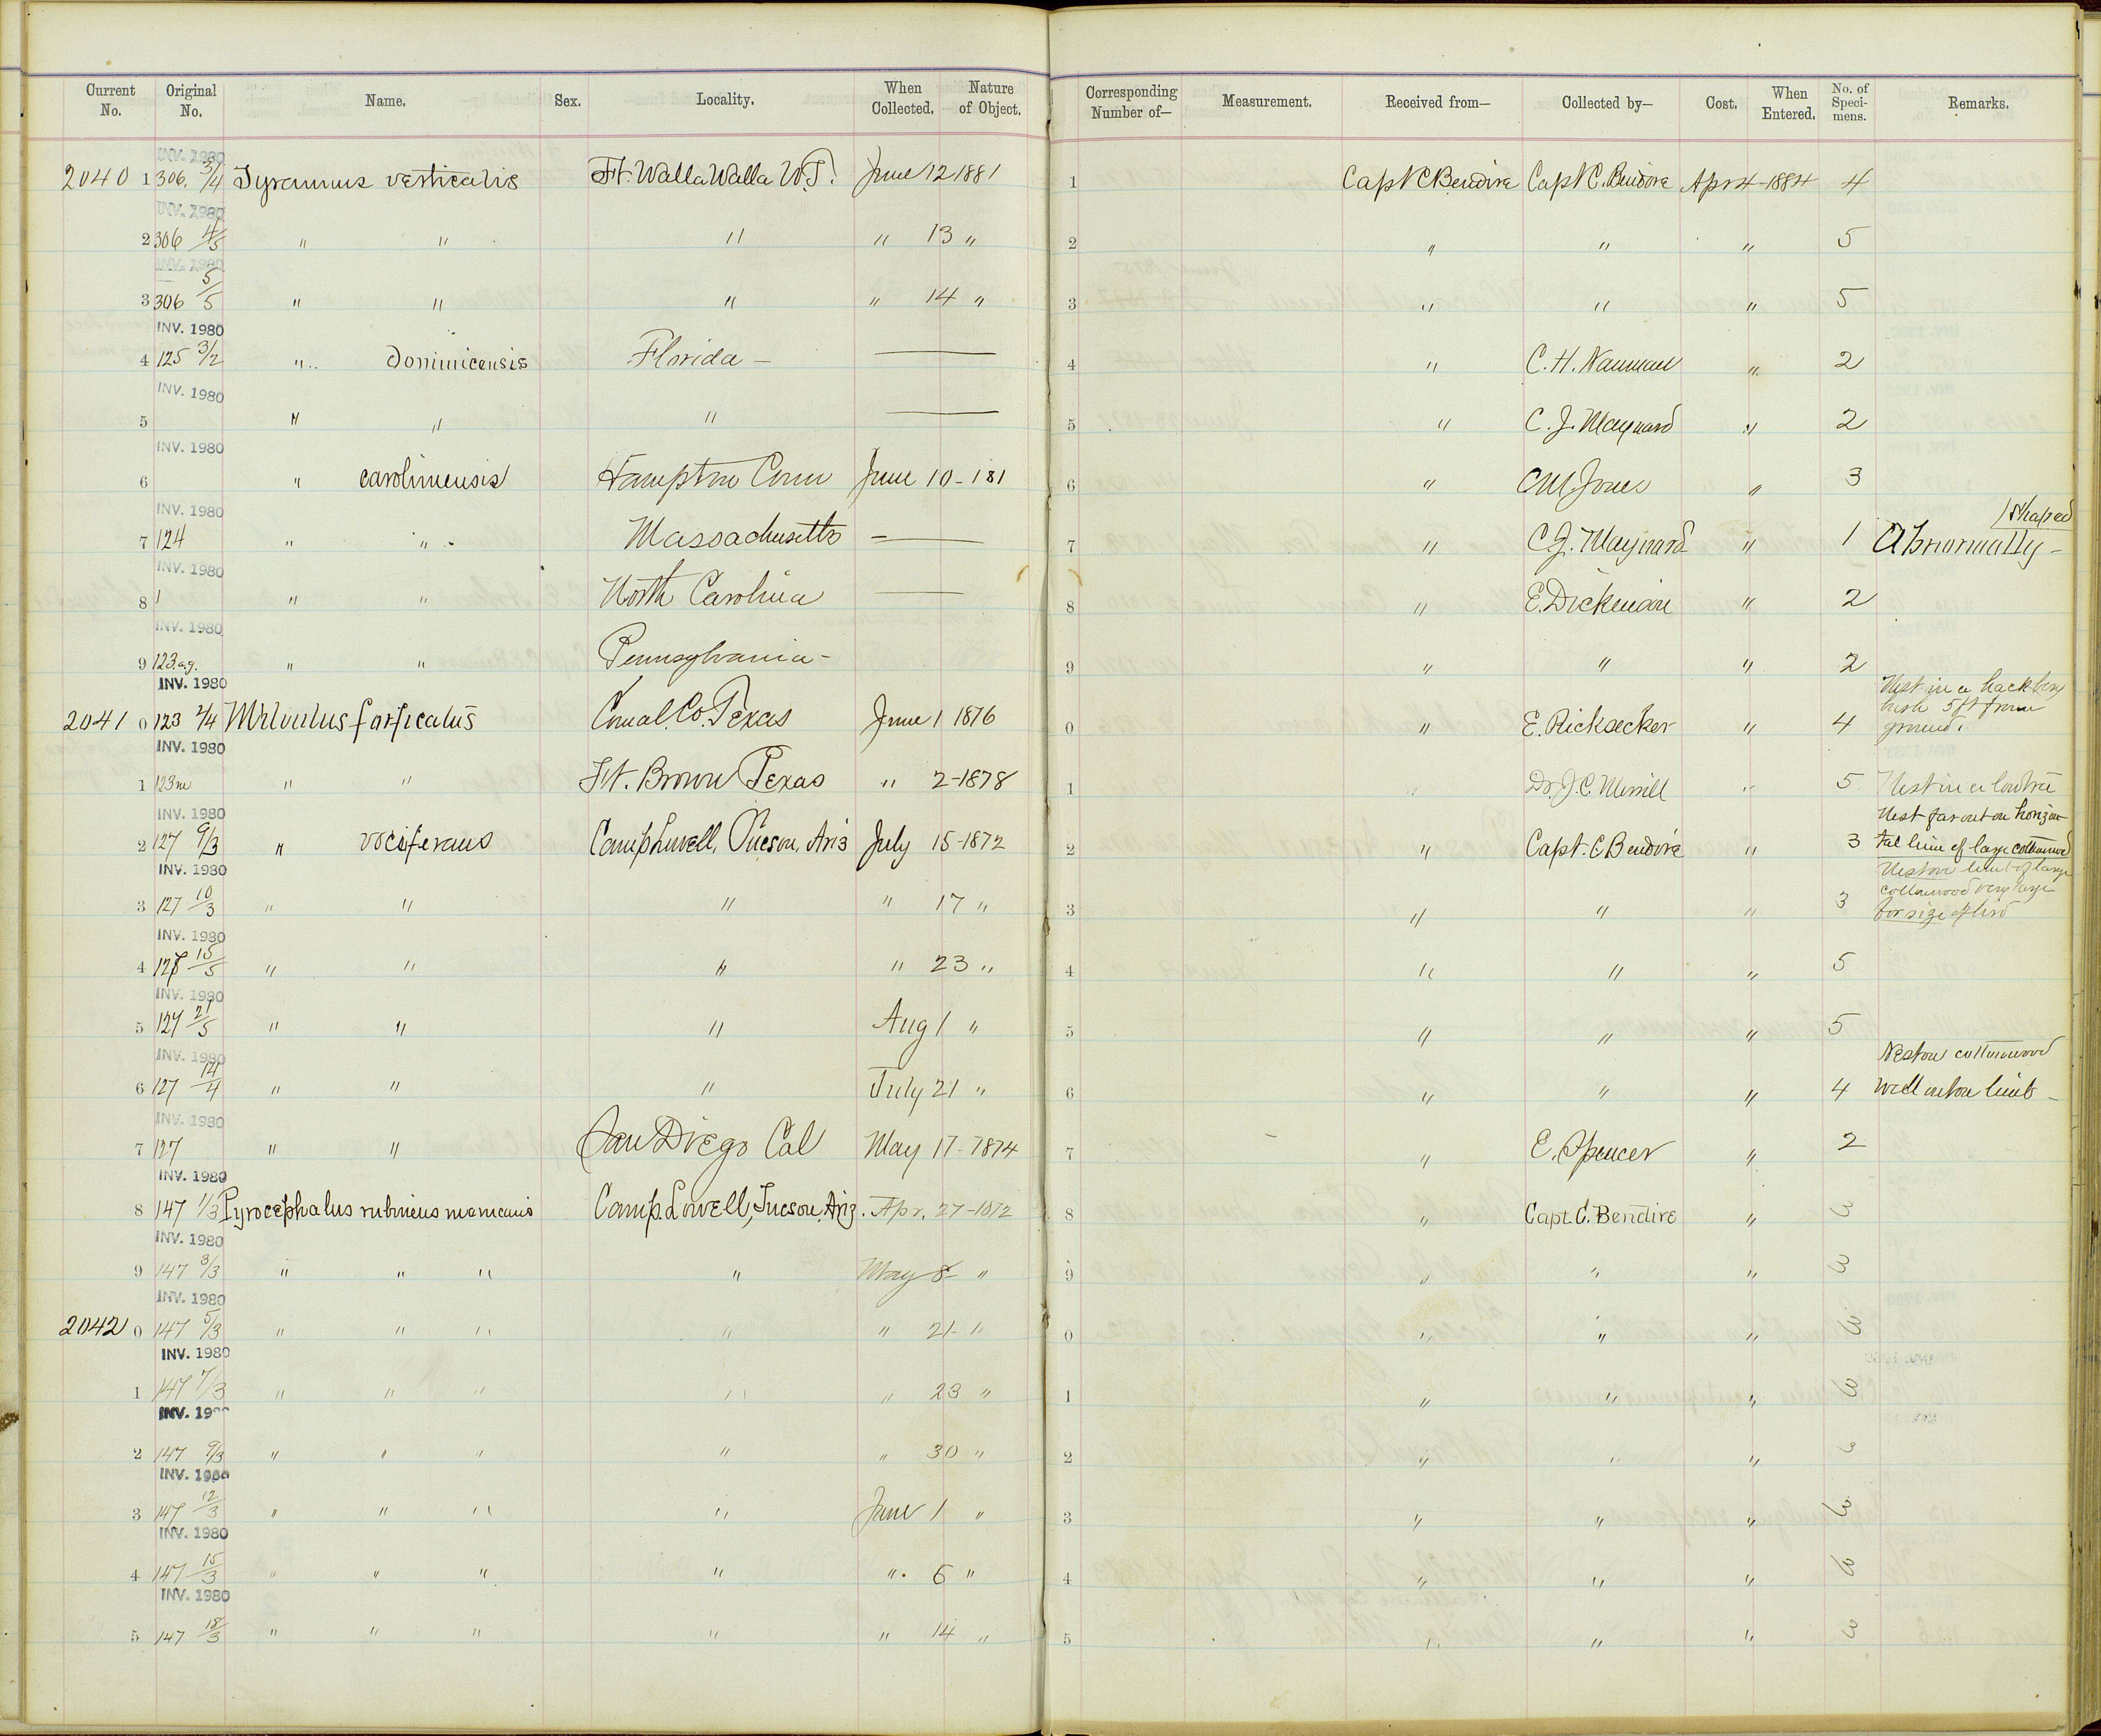 Current No. Original No. Name. Sex. Locality. When Collected. Nature of Object. Corresponding Number of— Measurement. Received from— Collected by— Cost. When Entered. No. of Speci-mens. Remarks.
INV. 1980
2040 1 306. 3/4 Tyrannus verticalis Ft. Walla Walla W.T. June 12 1881 1 Capt C Bendire Capt C. Bendire Apr 4-1884 4
INV. 1980
2 306 4/5 " " " " 13 " 2 " " " 5
INV. 1980
3 306 5/5 " " " " 14 " 3 " " " 5
INV. 1980
4 125 3/2 " dominicensis Florida — 4 " C. H. Nauman " 2
INV. 1980
5 " " " — 5 " C. J. Maynard " 2
INV. 1980
6 " carolinensis Hampton Conn June 10-181 6 " C M Jones " 3
INV. 1980
7 124 " " Massachusetts — 7 " C. J. Maynard " 1 Abnormally- / shaped
INV. 1980
8 1 " " North Carolina — 8 " E. Dickinson " 2
INV. 1980
9 123.a.g. " " Pennsylvania - 9 " " " 2
INV. 1980
2041 0 123 2/4 Milvulus forficatus Comal Co. Texas June 1 1876 0 " E. Ricksecker " 4 Nest in a hackberry bush 5 ft from ground.
INV. 1980
1 123 " " Ft. Brown Texas " 2-1878 1 " Dr. J. C. Merrill " 5 Nest in a low tree
INV. 1980
2 127 9/3 " vociferans Camp Lowell, Tucson, Ariz July 15-1872 2 " Capt. C. Bendire " 3 Nest far out on horizontal limb of large cottonwood
INV. 1980
3 127 10/3 " " " " 17 " 3 " " " 3 Nest on limb of large cottonwood very large for size of bird
INV. 1980
4 127 15/5 " " " " 23 " 4 " " " 5
INV. 1980
5 127 21/5 " " " Aug 1 " 5 " " " 5
INV. 1980
6 127 14/4 " " " July 21 " 6 " " " 4 Nest on cottonwood well out on limb -
INV. 1980
7 127 " " San Diego Cal May 17-1874 7 " E. Spencer " 2
INV. 1980
8 147 1/3 Pyrocephalus rubineus mexicanus Camp Lowell, Tucson, Ariz. Apr. 27-1872 8 " Capt. C. Bendire " 3
INV. 1980
9 147 3/3 " " " " May 8 " 9 " " " 3
INV. 1980
2042 0 147 5/3 " " " " " 21 " 0 " " " 3
INV. 1980
1 147 7/3 " " " " " 23 " 1 " " " 3
INV. 19
2 147 9/3 " " " " " 30 " 2 " " " 3
INV. 1980
3 147 12/3 " " " " June 1 " 3 " " " 3
INV. 1980
4 147 15/3 " " " " " 6 " 4 " " " 3
INV. 1980
5 147 18/3 " " " " " 14 " 5 " " " 3